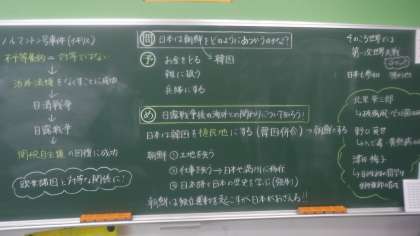 ノルマントン号事件(イギリス)
不平等条約 → 対等でない
↓
治外法権をなくすことに成功
↓
日清戦争
↓
日露戦争
↓
関税自主権の回復に成功
欧米諸国と対等な関係に!
問 日本は朝鮮をどのようにあつかうのかな?
予 お金をとる
韓国
奴に扱う
兵隊にする
め 日露戦争後の海外との関わりについて知ろう!
日本は韓国を植民地にする(韓国併合)→朝鮮のみ
朝鮮 ①土地を失う
②仕事を失う→日本や満州に移住
③日本語と日本の歴史を学ぶ(強制)
朝鮮は独立運動を起こすけど日本がおさえる!!
そのころ世界では
第一次世界大戦
日本も参加
北里柴三郎
野口英世
津田梅子